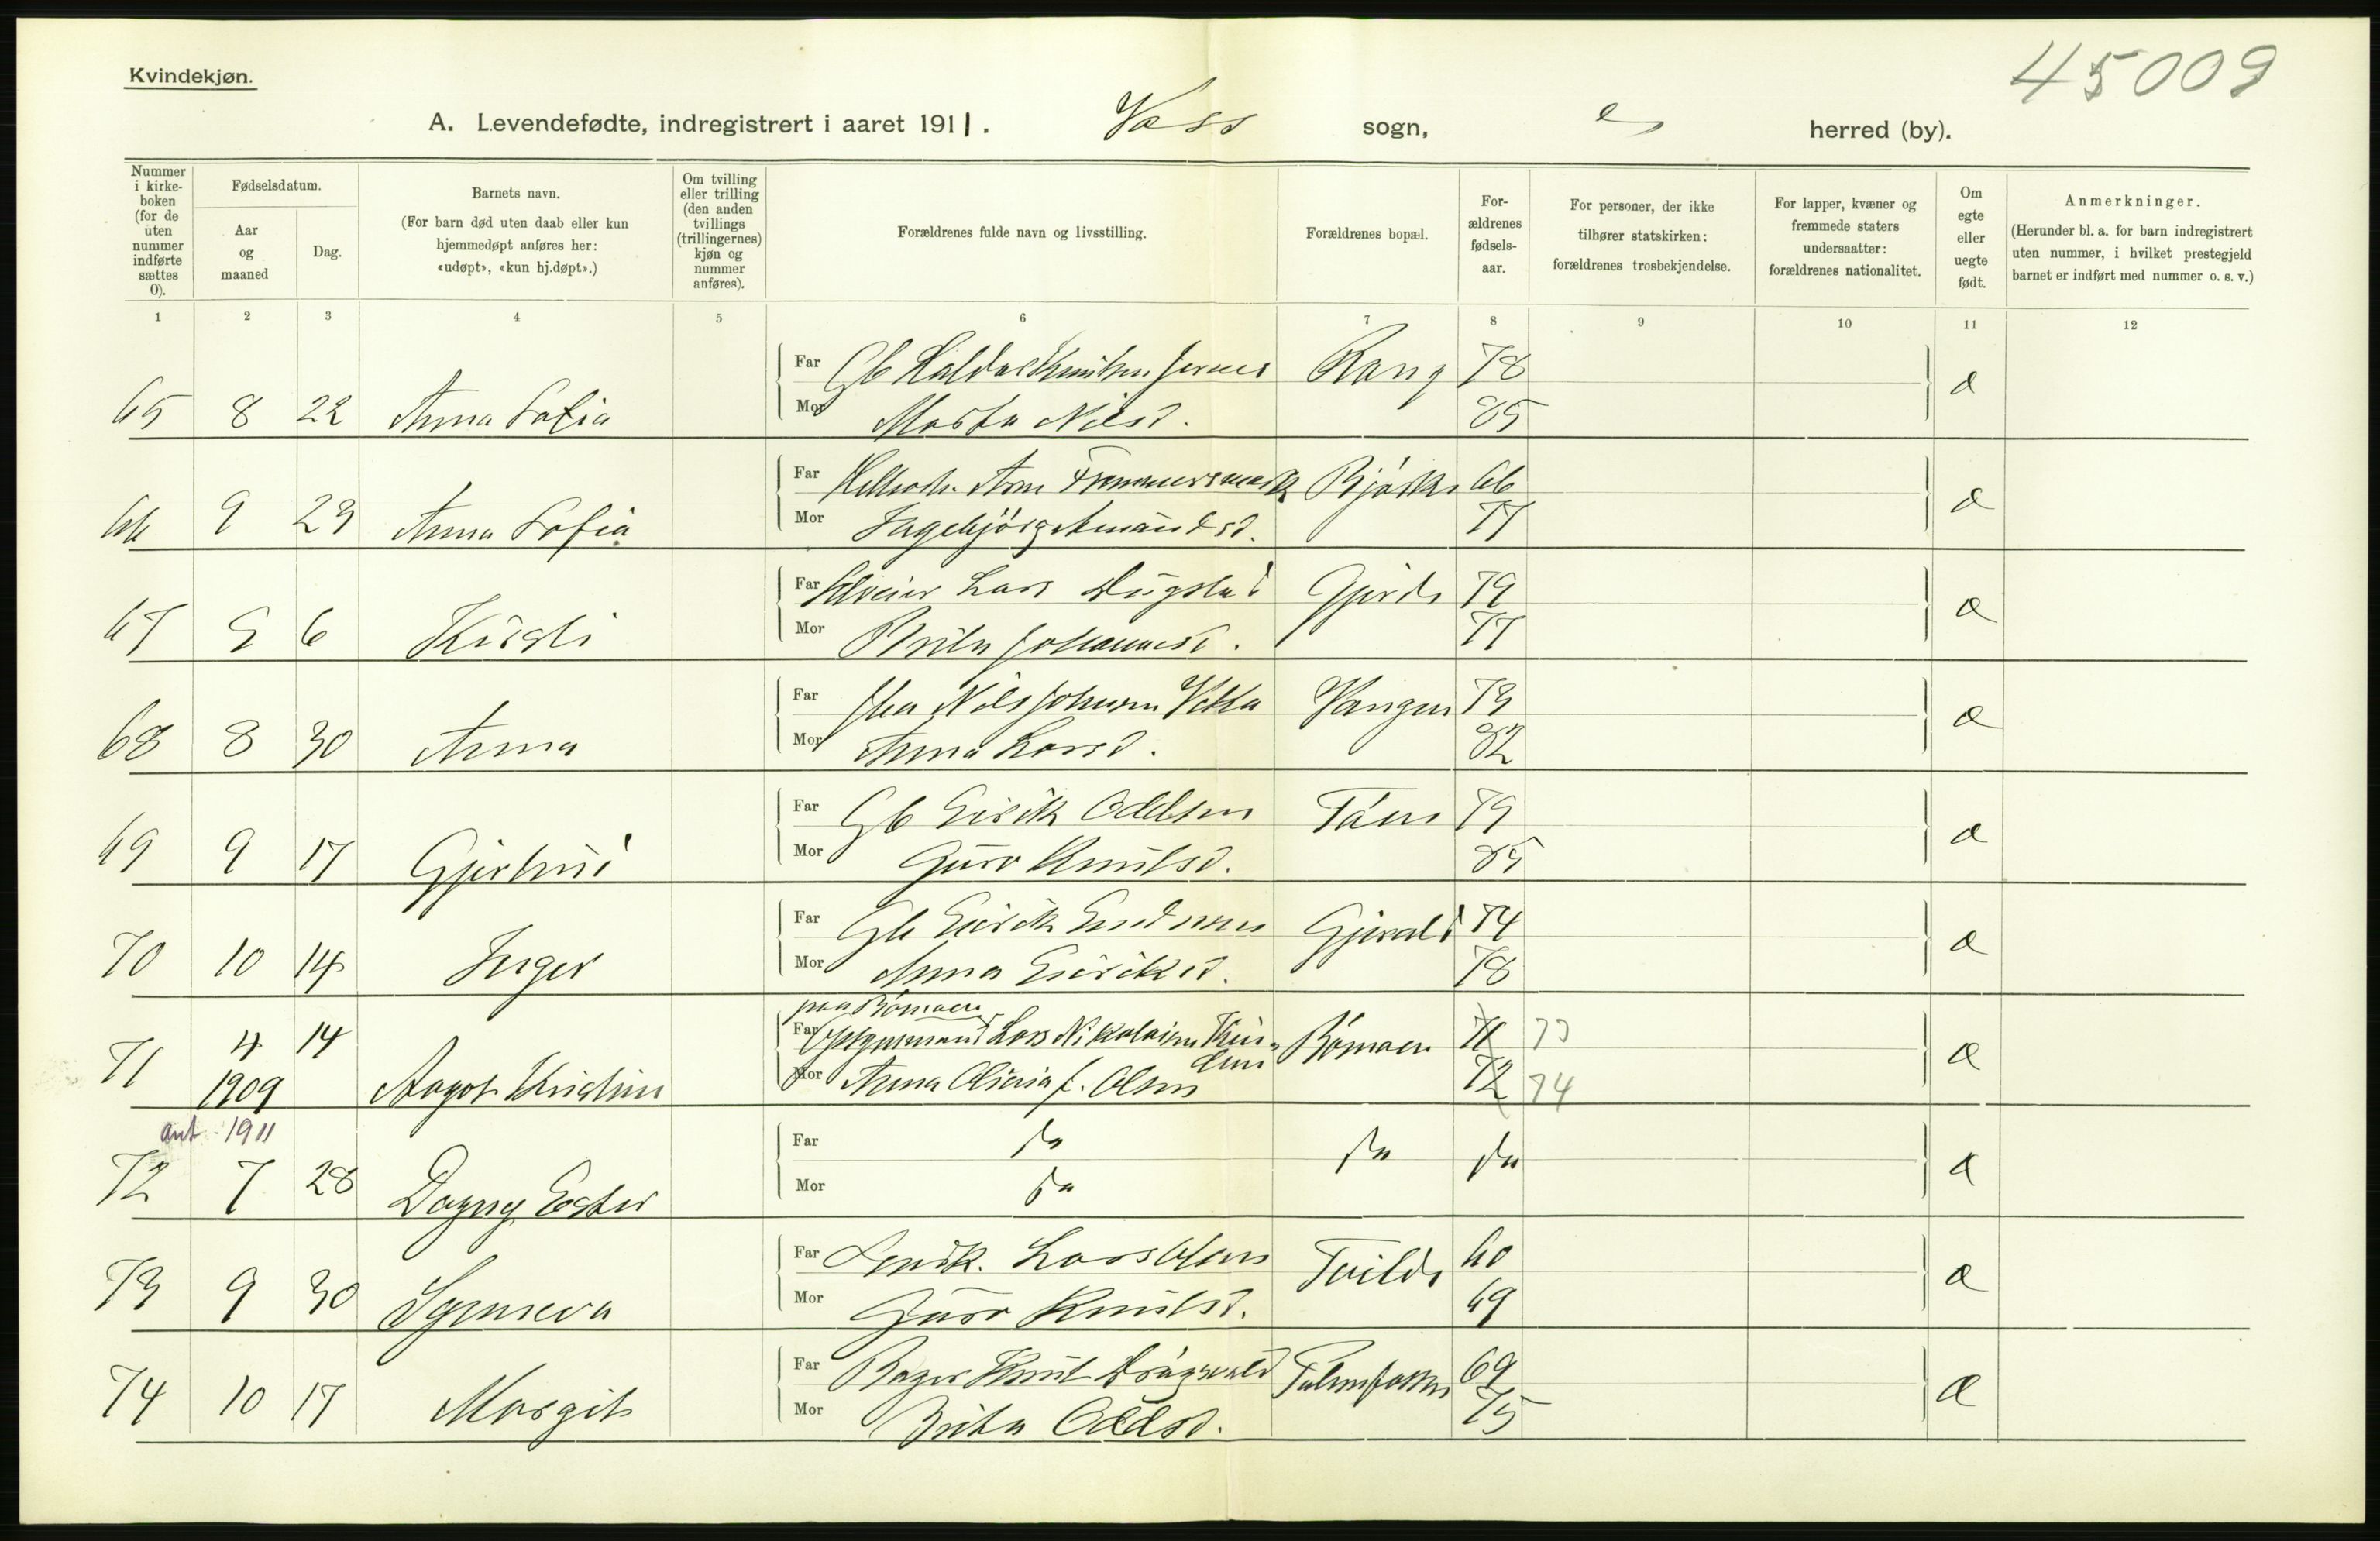 45009
Kvindekjøn.
A. Levendefødte, indregistrert i aaret 1911. Voss sogn, herred (by).
Nummer i kirkeboken (for de uten nummer indførte sættes 0).
Fødselsdatum.
Aar og maaned
Dag.
Barnets navn.
(For barn død uten daab eller kun hjemmedøpt anføres her: «udøpt», «kun hj.døpt».)
Om tvilling eller trilling (den anden tvillings (trillingernes) kjøn og nummer anføres).
Forældrenes fulde navn og livsstilling.
Forældrenes bopæl.
For-ældrenes fødsels-aar.
For personer, der ikke tilhører statskirken: forældrenes trosbekjendelse.
For lapper, kvæner og fremmede staters undersaatter: forældrenes nationalitet.
Om egte eller uegte født.
Anmerkninger.
(Herunder bl. a. for barn indregistrert uten nummer, i hvilket prestegjeld barnet er indført med nummer o. s. v.)
1 2 3 4 5 6 7 8 9 10 11 12
Far Gb Haldor Knutsen Rang 78
65 8 22 Anna Sofia Mor Marta Nilsd. 85
Far Arne Bjørke 66
66 9 23 Anna Sofia Mor Ingebjörg Amundsd. 77
Far Lars Dugstad Gjerde 79
67 9 6 Kirsti Mor Brita Johannesd. 77
Far Nils Johnsen Vangen 73
68 8 30 Anna Mor Anna Larsd. 82
Far Gb Eirik Oddsen 79
69 9 17 Gjertrud Mor Guro Knutsd. 85
Far Gb Eirik 74
70 10 14 Inger Mor Anna Eiriksd. 78
paa Bömoen
Far Lars Nikolaisen Bömoen 71 73
71 4 14 1909 Aagot Kristine Mor Anna f. Olsen 72 74
ant 1911
Far do do do
72 7 28 Dagny Ester Mor do
Far Lars Olsen Tvilde 60
73 9 30 Synneva Mor Guro Knutsd. 69
Far Bager Knut 69
74 10 17 Margit Mor Brita Oddsd. 75